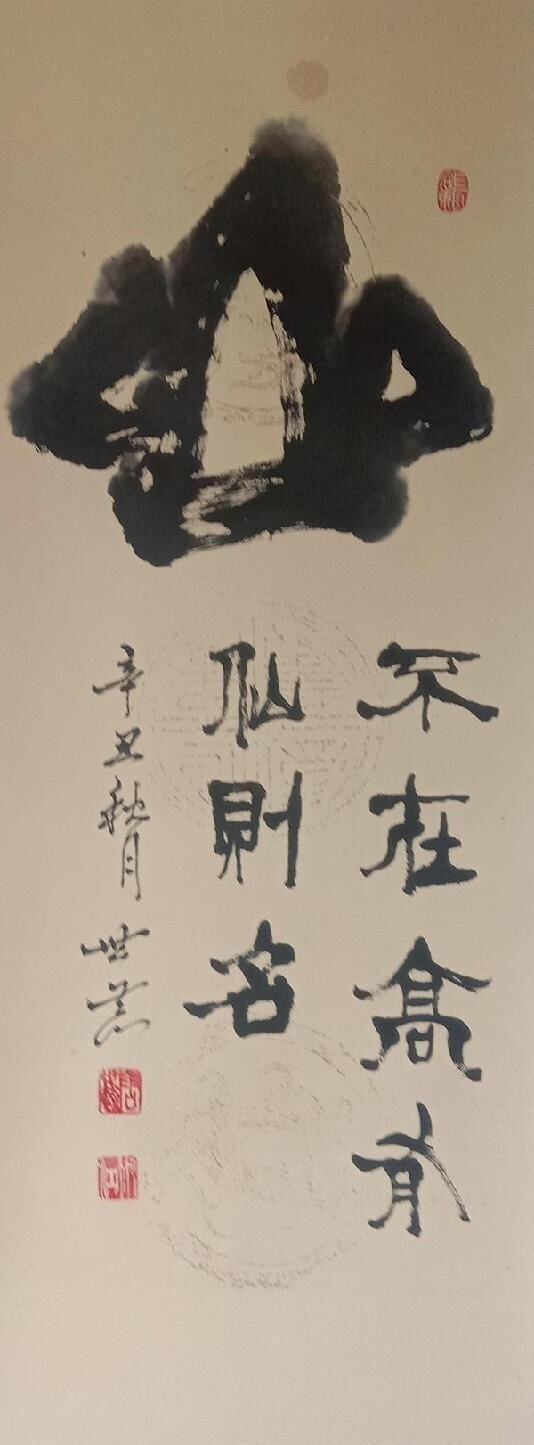 山
不在高有
仙则名
辛丑秋月
世